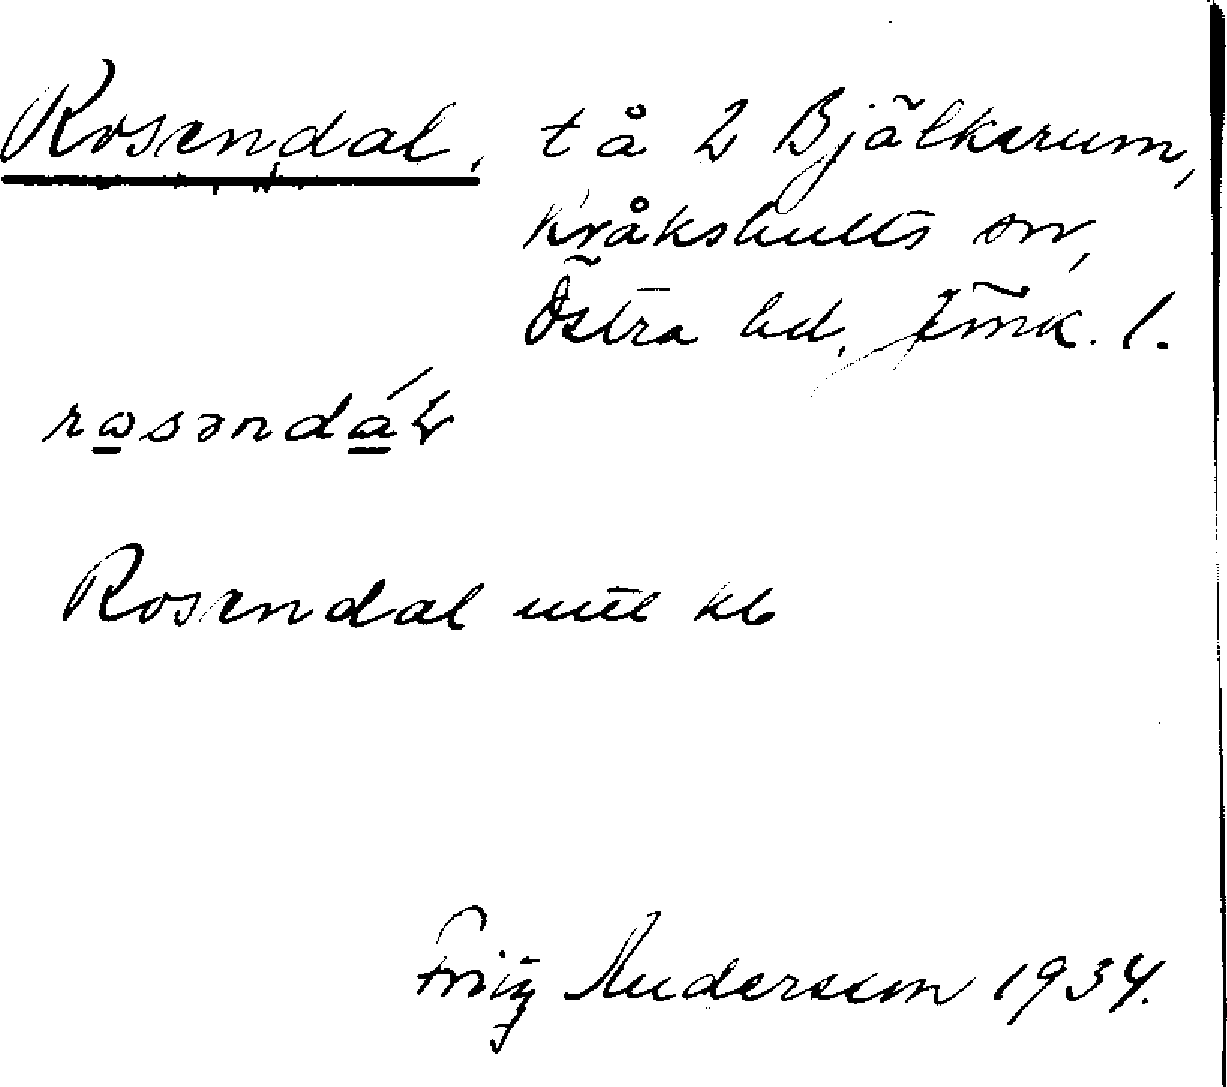 Rosendal, t å 2 Bjälkerum,
Kråkshults sn,
Östra hd, Jmk. l.
Rosendal utt kb
Fritz Andersson 1934.